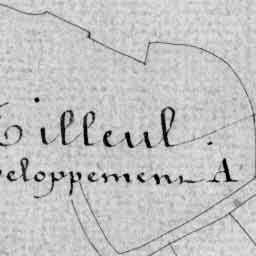 Tilleul.
veloppement A